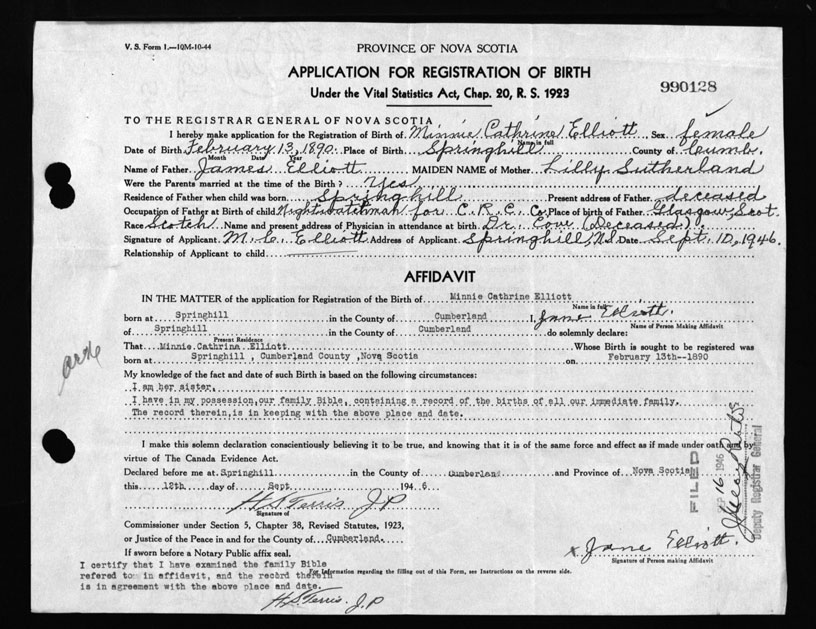 V. S. Form 1.—10M-10-44
PROVINCE OF NOVA SCOTIA
APPLICATION FOR REGISTRATION OF BIRTH
Under the Vital Statistics Act, Chap. 20, R. S. 1923
990128
TO THE REGISTRAR GENERAL OF NOVA SCOTIA
I hereby make application for the Registration of Birth of Minnie Cathrine Elliott Sex female
Name in full
Date of Birth February 13, 1890. Place of Birth Springhill County of Cumb.
Month Date Year
Name of Father James Elliott MAIDEN NAME of Mother Lilly Sutherland
Were the Parents married at the time of the Birth? Yes
Residence of Father when child was born Springhill Present address of Father deceased
Occupation of Father at Birth of child Nightwatchman for C. R. C. Co. Place of birth of Father Glasgow, Scot.
Race Scotch Name and present address of Physician in attendance at birth Dr. Cove (Deceased).
Signature of Applicant M. C. Elliott Address of Applicant Springhill, N.S. Date Sept. 10, 1946.
Relationship of Applicant to child
AFFIDAVIT
IN THE MATTER of the application for Registration of the Birth of Minnie Cathrine Elliott
Name in full
born at Springhill in the County of Cumberland I, Jane Elliott.
Name of Person Making Affidavit
of Springhill in the County of Cumberland do solemnly declare:
Present Residence
That Minnie Cathrina Elliott Whose Birth is sought to be registered was
born at Springhill , Cumberland County ,Nova Scotia on February 13th--1890
My knowledge of the fact and date of such Birth is based on the following circumstances:
I am her sister.
I have in my possession,our family Bible, containing a record of the births of all our immediate family.
The record therein,is in keeping with the above place and date.
I make this solemn declaration conscientiously believing it to be true, and knowing that it is of the same force and effect as if made under oath and by
virtue of The Canada Evidence Act.
Declared before me at Springhill in the County of Cumberland and Province of Nova Scotia
this 12th day of Sept 1946
H S Terris J.P
Signature of
Commissioner under Section 5, Chapter 38, Revised Statutes, 1923,
or Justice of the Peace in and for the County of Cumberland.
If sworn before a Notary Public affix seal.
Jane Elliott.
Signature of Person making Affidavit
For Information regarding the filling out of this Form, see Instructions on the reverse side.
I certify that I have examined the family Bible
refered to in affidavit, and the record therein
is in agreement with the above place and date.
H.S. Terris. J.P
FILED
SEP 16 1946
Deputy Registrar General